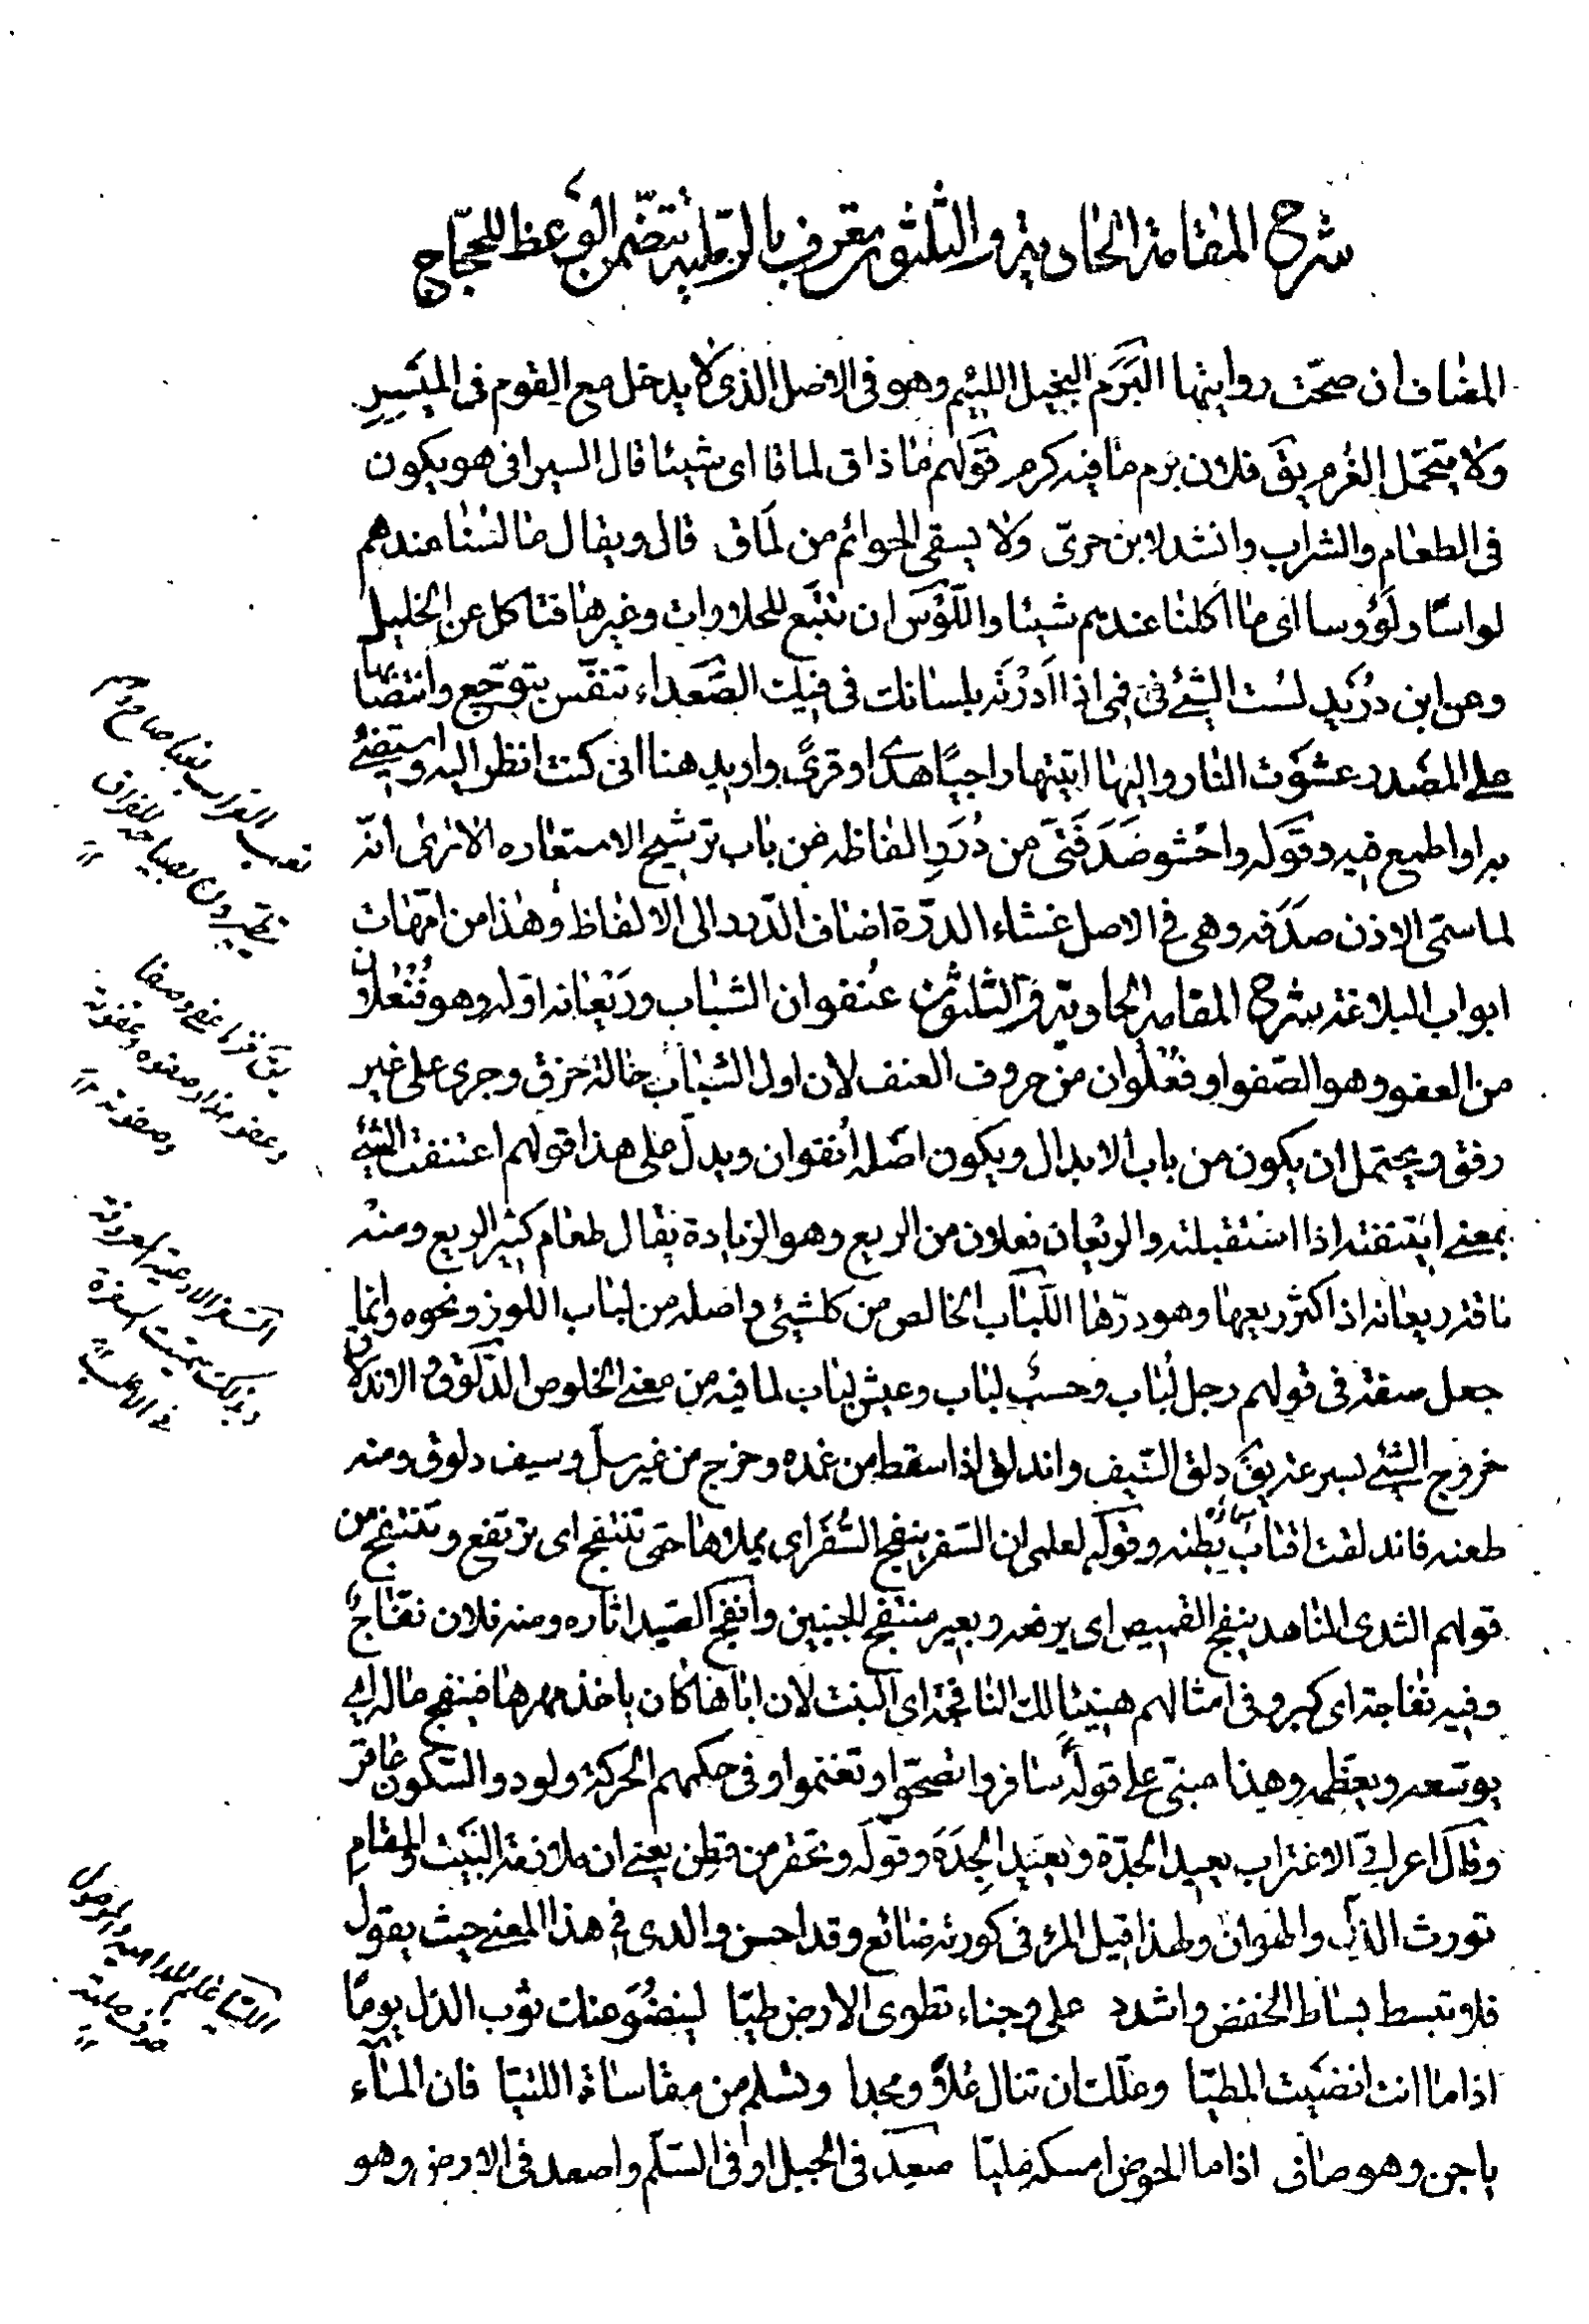 شرح المقامة الحادية والثلثون تعرف بالرملية تتضمن الوعظ للحجاج
المضاف ان صحّت روايتها البَرَم البخيل اللئيم وهو فى الاصل الذى لا يدخل مع القوم فى المَيْسِرِ
ولا يتحمّل الغُرم يقَ فلان برم ما فيه كرم قولهم ما ذاق لماقا اى شيئا قال السيرافى هو يكون
فى الطعام والشراب وانشد لابن حرىّ ولا يسقى الحوائم من لَماق قال ويقال ما لُسْنا عندهم
لواسًا ولَؤُوسا اى ما اكلنا عندهم شيئا واللَّوْسَ ان تتبّع للحلاوات وغيرها فتاكل عن الخليل
وعن ابن دُرَيد لسُت الشئ فى فمى اذا اَدَرْتَه بلسانك فى فيك الصُّعَداء تنفّس بتوجّع وانتصابها
على المصدر عشوت النار واليها اتيتها راجيًا هدًى او قرًى واريد هنا انى كنت انظر اليه واستضئ
به او اطمع فيه وقوله واحشو صَدَفَتَىّ من دُرَرِ الفاظه من باب ترشيح الاستعاره الا ترى انّه
لما سمّى الاذن صدَفه وهى فى الاصل غشاء الدرّة اضاف الدّرر الى الالفاظ وهذا من امّهات
ابواب البلاغة شرح المقامه الحادية والثلثون عُنفوان الشباب ورَيْعانه اوله وهو فُنْعلان
من العفو وهو الصّفو او فُعْلُوان من حروف العنف لان اول الشباب حالة خرق وجرى على غير
رفق ويحتمل ان يكون من باب الابدال ويكون اصله اُنفوان ويدلّ على هذا قولهم اعتنفت الشئ
بمعنى ايتنفته اذا استقبلته والريعان فعلان من الريع وهو الزيادة يقال طعام كثير الريع ومنه
ناقة ريعانه اذا اكثر ريعها وهو درّها اللُّباب الخالص من كلشئ واصله من لباب اللوز ونحوه وانما
جعل صفة فى قولهم رجل لُباب وحسب لباب وعيش لباب لما فيه من معنى الخلوص الدّلوق والاندلاق
خروج الشئ بسرعة يقَ دلق السّيف واندلق اذا سقط من غمده وخرج من غير سلّ وسيف دلوق ومنه
طعنه فاندلقت اقتاب بطنه وقوله لعلمى ان السفر ينفج السُّفَر اى يملاها حتى تنتفج اى ترتفع وتنتفج من
قولهم الثدى الناهد ينفج القميص اى يرفعه وبعير منتفج الجنبين وانفج الصّيد اثاره ومنه فلان نفّاجٌ
وفيه نفاجة اى كبر وفى امثالهم هنيئًا لك النافجة اى البنت لان اباها كان ياخذ مهرها فينفج ماله اى
يوسّعه ويعظّمه وهذا مبنىّ على قوله سافروا تصحّوا وتغنموا وفى حكمهم الحركة ولود والسكون عاقر
وقال اعرابى الاغتراب يعيد الجدّة ويُعيد الجِدَةَ وقوله وتحقر من قطن يعنى ان ملازمة البيت والمقام
تورث الذلّ والهوان ولهذا قيل المرء فى كورته ضائع وقد احسن والدى فى هذا المعنى حيث يقول
فلا تبسط بساط الخفض واشدد على وجناء تطوى الارض طيّا لينضُوَ عنك ثوب الذل يومًا
اذا ما انت انضيت المطيّا وعلّك ان تنال عُلاً ومجدا وتسلم من مقاساة اللئيّا فان الماء
ياجن وهو صاف اذا ما الحوض امسكه مليّا صعِدَ فى الجبل او فى السّلّم واصعد فى الارض وهو
نعب الغراب نعبا صاح
يتطيرون بصياحه للفراق
وعفو هذا وصفوه وعفوته
وصفوته
فى العرب